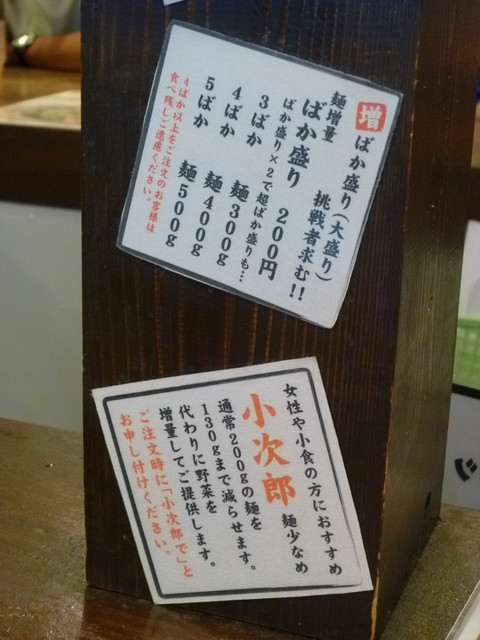 増 ばか盛り(大盛り)
麺増量 挑戦者求む!!
ばか盛り 200円
ばか盛り×2で超ばか盛りも…
3ばか 麺300g
4ばか 麺400g
5ばか 麺500g
4ばか以上をご注文のお客様は
食べ残しご遠慮ください。
女性や小食の方におすすめ
小次郎 麺少なめ
通常200gの麺を
130gまで減らせます。
代わりに野菜を
増量してご提供します。
ご注文時に「小次郎で」と
お申し付けください。